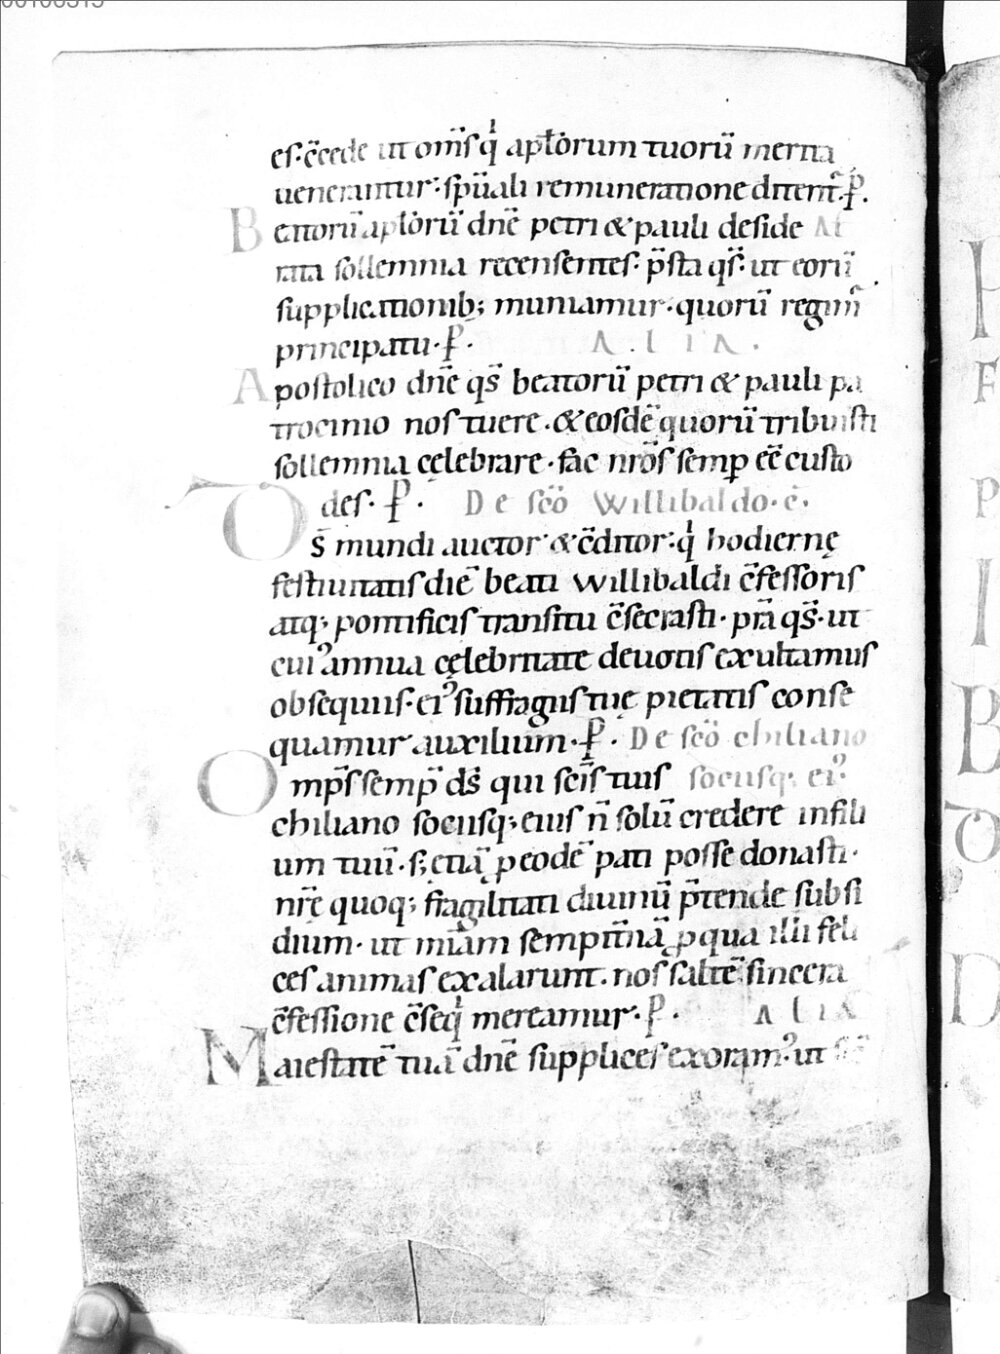 es· c̄cede ut om̄s qi apl̄orum tuorū merita
uenerantur· sp̄uali remuneratione ditent̄· P̄.
Beatorū apl̄orū dn̄e petri & pauli deside
rata sollemnia recensentes· p̄sta qs̄· ut eorū
supplicationib; muniamur· quorū regim̄
principatu· P̄· ALIA·
Apostolico dn̄e qs̄ beatorū petri & pauli pa
trocinio nos tuere· & eosdē quorū tribuisti
sollemnia cęlebrare· fac nr̄os semp̄ ēē custo
des· P̄· De sc̄o Willibaldo· c̄·
Ds̄ mundi auctor & c̄ditor· qi hodiernę
festiuitatis diē beati willibaldi c̄fessoris
atq; pontificis transitu c̄secrasti· p̄ra qs̄· ut
cui᾽ annua cęlebritate deuotis exultamus
obsequiis· ei᾽ suffragiis tuę pietatis conse
quamur auxilium· P̄· De sc̄o chiliano
Omp̄s semp̄ ds̄ qui sc̄is tuis sociisq; ei᾽
chiliano sociisq; eius n̄ solū credere in fili
um tuū· s; etiā p eodē pati posse donasti·
nr̄ę quoq; fragilitati diuinū p̄tende subsi
dium· ut miam̄ sempit̄nā p qua illi feli
ces animas exalarunt· nos saltē sincera
c̄fessione c̄seqi mereamur· P̄· ALIA
Maiestatē tuā dn̄e supplices exoram᾽ ut